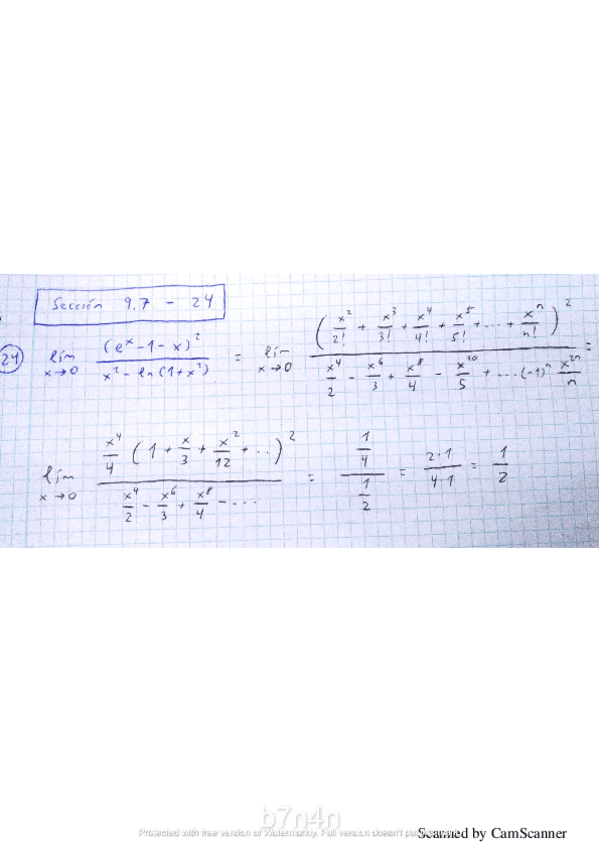 Sección 9.7 - 24
24) lím x→0 (eˣ - 1 - x)² / (x² - ln(1 + x²)) = lím x→0 (x²/2! + x³/3! + x⁴/4! + x⁵/5! + ... + xⁿ/n!)² / (x⁴/2 - x⁶/3 + x⁸/4 - x¹⁰/5 + ... (-1)ⁿ x²ⁿ/n) =
lím x→0 x⁴/4 (1 + x/3 + x²/12 + ...)² / (x⁴/2 - x⁶/3 + x⁸/4 - ...) = (1/4) / (1/2) = 2·1 / 4·1 = 1/2
b7n4n
Protected with free version of Watermarkly. Full version doesn't put
Scanned by CamScanner